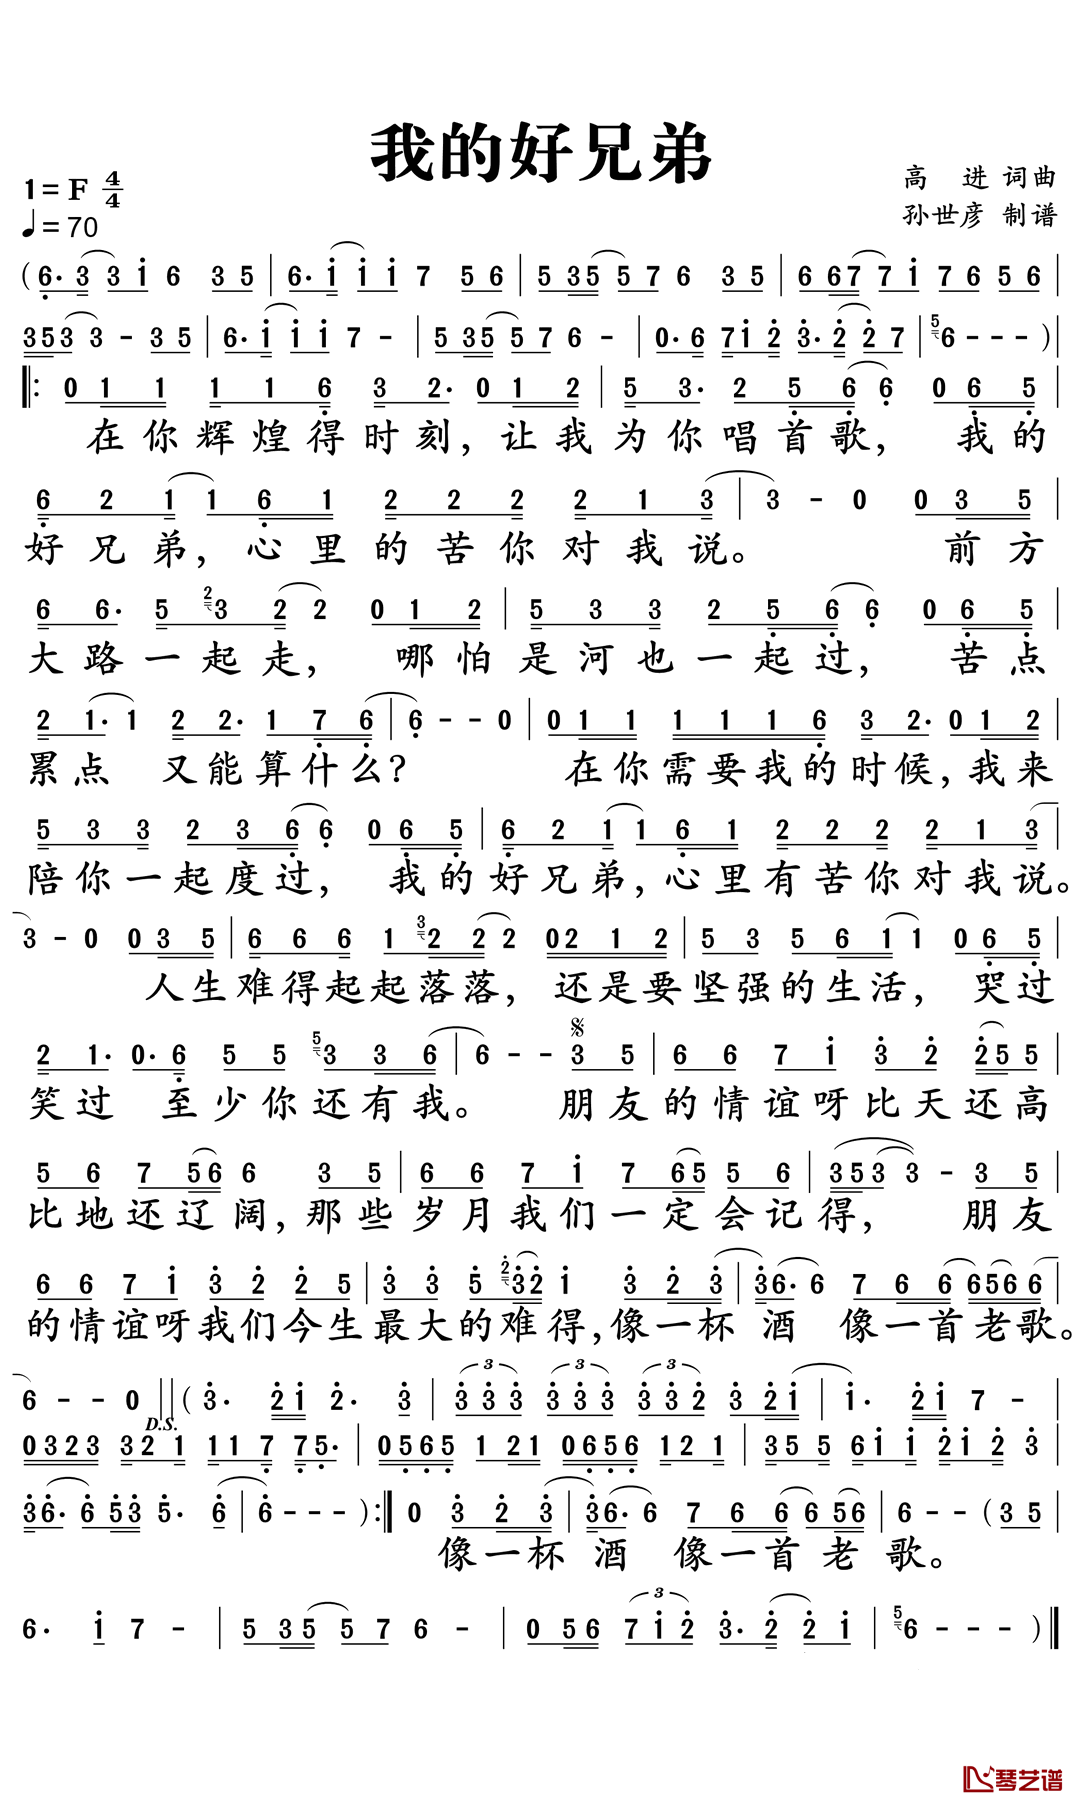 我的好兄弟
1=F 4/4
高 进 词曲
♩=70
孙世彦 制谱
(6· 3 3 1 6 3 5 | 6· 1 1 1 7 5 6 | 5 3 5 5 7 6 3 5 | 6 6 7 7 1 7 6 5 6 |
3 5 3 3 - 3 5 | 6· 1 1 1 7 - | 5 3 5 5 7 6 - | 0· 6 7 1 2 3· 2 2 7 | 5 6 - - - )
‖: 0 1 1 1 1 6 3 2· 0 1 2 | 5 3· 2 5 6 6 0 6 5 |
在你辉煌得时刻,让我为你唱首歌, 我的
6 2 1 1 6 1 2 2 2 2 1 3 | 3 - 0 0 3 5 |
好兄弟,心里的苦你对我说。 前方
6 6· 5 2 3 2 2 0 1 2 | 5 3 3 2 5 6 6 0 6 5 |
大路一起走, 哪怕是河也一起过, 苦点
2 1· 1 2 2· 1 7 6 | 6 - - 0 | 0 1 1 1 1 1 6 3 2· 0 1 2 |
累点 又能算什么? 在你需要我的时候,我来
5 3 3 2 3 6 6 0 6 5 | 6 2 1 1 6 1 2 2 2 2 1 3 |
陪你一起度过, 我的好兄弟,心里有苦你对我说。
3 - 0 0 3 5 | 6 6 6 1 3 2 2 2 0 2 1 2 | 5 3 5 6 1 1 0 6 5 |
人生难得起起落落, 还是要坚强的生活, 哭过
2 1· 0· 6 5 5 5 3 3 6 | 6 - - 𝄋 3 5 | 6 6 7 1 3 2 2 5 5 |
笑过 至少你还有我。 朋友的情谊呀比天还高
5 6 7 5 6 6 3 5 | 6 6 7 1 7 6 5 5 6 | 3 5 3 3 - 3 5 |
比地还辽阔,那些岁月我们一定会记得, 朋友
6 6 7 1 3 2 2 5 | 3 3 5 2 3 2 1 3 2 3 | 3 6· 6 7 6 6 6 5 6 6
的情谊呀我们今生最大的难得,像一杯 酒 像一首老歌。
6 - - 0 ‖ ( 3· 2 1 2· 3 | 3 3 3 3 3 3 3 3 2 3 2 1 | 1· 2 1 7 - |
D.S.
0 3 2 3 3 2 1 1 1 7 7 5· | 0 5 6 5 1 2 1 0 6 5 6 1 2 1 | 3 5 5 6 1 1 2 1 2 3 |
3 6· 6 5 3 5· 6 | 6 - - - ) :‖ 0 3 2 3 | 3 6· 6 7 6 6 6 5 6 | 6 - - ( 3 5 |
像一杯 酒 像一首老歌。
6· 1 7 - | 5 3 5 5 7 6 - | 0 5 6 7 1 2 3· 2 2 1 | 5 6 - - - ) ‖
琴艺谱